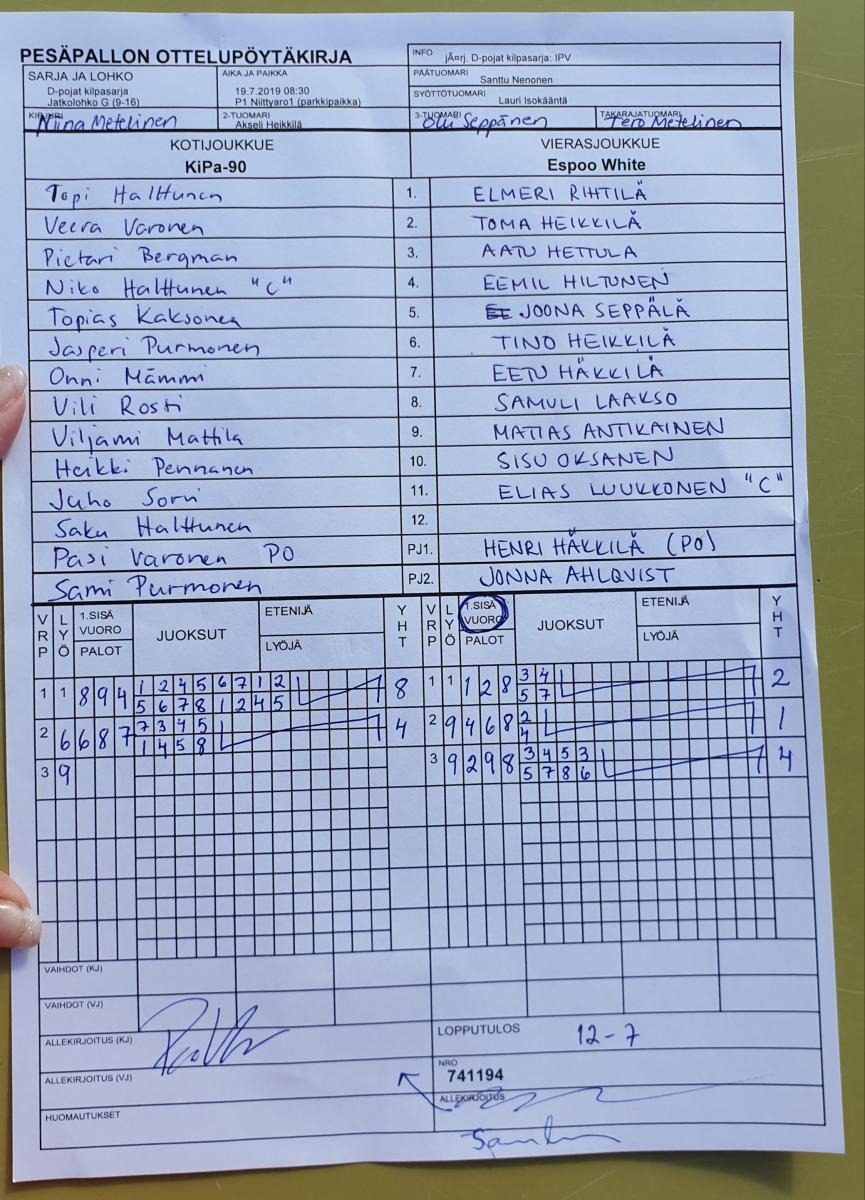 PESÄPALLON OTTELUPÖYTÄKIRJA
INFO jÃ¤rj. D-pojat kilpasarja: IPV
SARJA JA LOHKO
D-pojat kilpasarja
Jatkolohko G (9-16)
AIKA JA PAIKKA
19.7.2019 08:30
P1 Niittyaro1 (parkkipaikka)
PÄÄTUOMARI
Santtu Nenonen
SYÖTTÖTUOMARI
Lauri Isokääntä
KIRJURI
Niina Metelinen
2-TUOMARI
Akseli Heikkilä
3-TUOMARI
Olli Seppänen
TAKARAJATUOMARI
Tero Metelinen
KOTIJOUKKUE VIERASJOUKKUE
KiPa-90 Espoo White
Topi Halttunen 1. ELMERI RIHTILÄ
Veera Varonen 2. TOMA HEIKKILÄ
Pietari Bergman 3. AATU HETTULA
Niko Halttunen "C" 4. EEMIL HILTUNEN
Topias Kaksonen 5. JOONA SEPPÄLÄ
Jasperi Purmonen 6. TINO HEIKKILÄ
Onni Mämmi 7. EETU HÄKKILÄ
Vili Rosti 8. SAMULI LAAKSO
Viljami Mattila 9. MATIAS ANTIKAINEN
Heikki Pennanen 10. SISU OKSANEN
Juho Sorvi 11. ELIAS LUUKKONEN "C"
Saku Halttunen 12.
Pasi Varonen PO PJ1. HENRI HÄKKILÄ (PO)
Sami Purmonen PJ2. JONNA AHLQVIST
VRP LYÖ 1.SISÄ VUORO PALOT JUOKSUT ETENIJÄ LYÖJÄ YHT VRP LYÖ 1.SISÄ VUORO PALOT JUOKSUT ETENIJÄ LYÖJÄ YHT
1 1 8 9 4 1 2 4 5 6 7 1 2 8 1 1 1 2 8 3 4 2
5 6 7 8 1 2 4 5 5 7
2 6 6 8 7 7 3 4 5 4 2 9 4 6 8 2 1
1 4 5 8 4
3 9 3 9 2 9 8 3 4 5 3 4
5 7 8 6
VAIHDOT (KJ)
VAIHDOT (VJ)
ALLEKIRJOITUS (KJ)
LOPPUTULOS 12-7
ALLEKIRJOITUS (VJ)
NRO
741194
HUOMAUTUKSET
ALLEKIRJOITUS